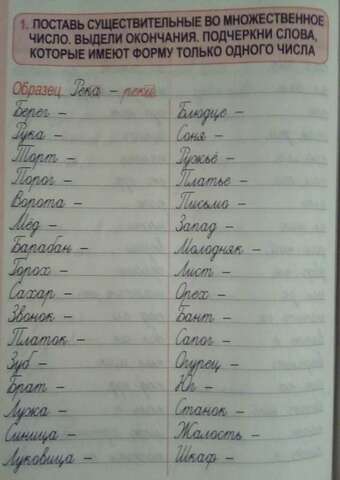 1. ПОСТАВЬ СУЩЕСТВИТЕЛЬНЫЕ ВО МНОЖЕСТВЕННОЕ
ЧИСЛО. ВЫДЕЛИ ОКОНЧАНИЯ. ПОДЧЕРКНИ СЛОВА,
КОТОРЫЕ ИМЕЮТ ФОРМУ ТОЛЬКО ОДНОГО ЧИСЛА
Образец Река – реки
Берег –
Рука –
Торт –
Порог –
Ворота –
Мёд –
Барабан –
Горох –
Сахар –
Звонок –
Платок –
Зуб –
Брат –
Лужа –
Синица –
Луковица –
Блюдце –
Соня –
Ружьё –
Платье –
Письмо –
Запад –
Молодняк –
Лист –
Орех –
Бант –
Сапог –
Огурец –
Юг –
Станок –
Жалость –
Шкаф –